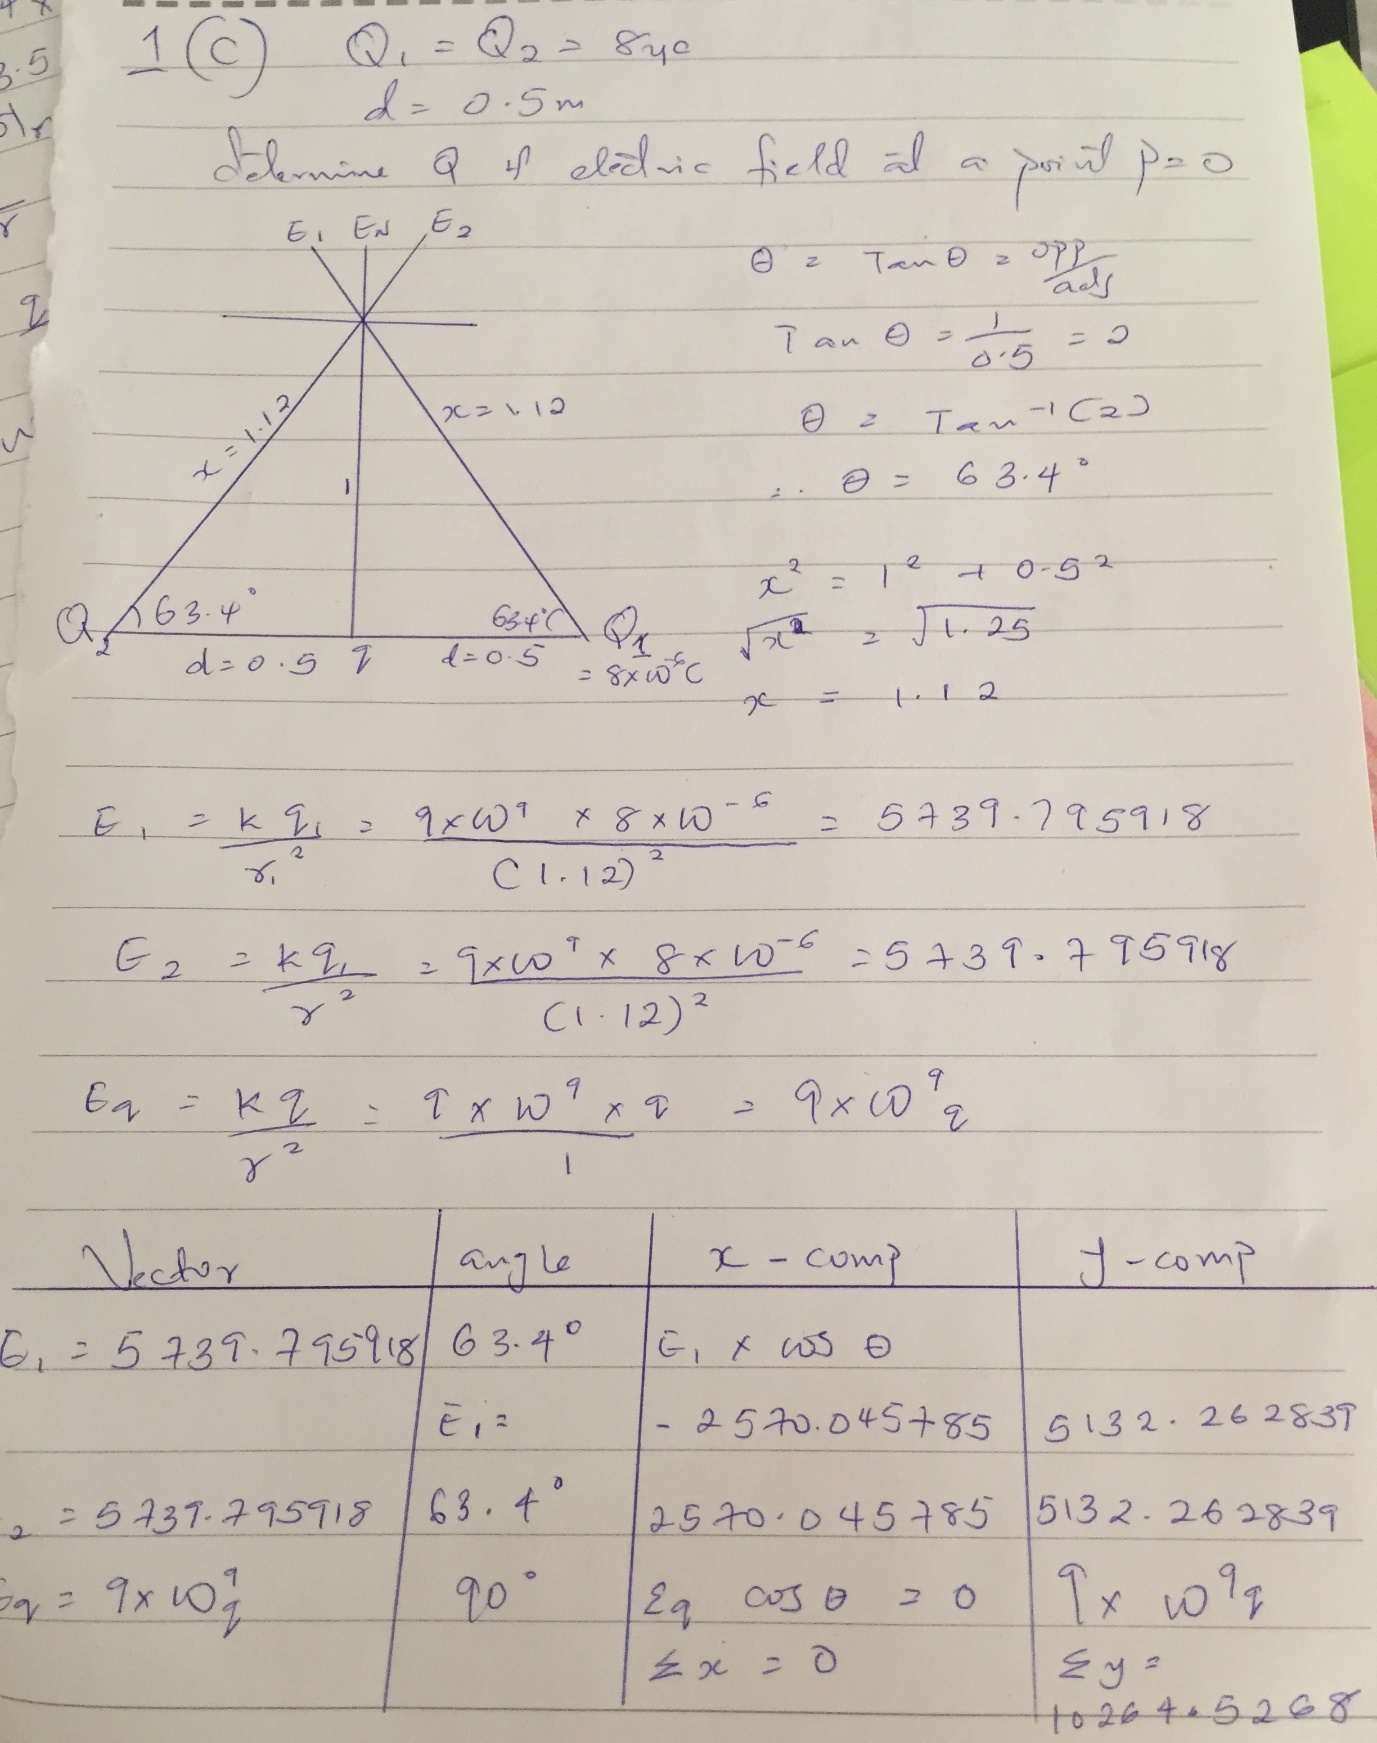 1 (c) Q₁ = Q₂ = 8μc
d = 0.5m
determine Q if electric field at a point p = 0
E₁ EN E₂
θ = Tan θ = opp/adj
Tan θ = 1/0.5 = 2
θ = Tan⁻¹(2)
∴ θ = 63.4°
x = 1.12
x = 1.12
1
Q₂ 63.4° 63.4° Q₁
d = 0.5 q d = 0.5 = 8×10⁻⁶C
x² = 1² + 0.5²
√x² = √1.25
x = 1.12
E₁ = kq₁/r₁² = 9×10⁹ × 8×10⁻⁶/(1.12)² = 5739.795918
E₂ = kq₁/r² = 9×10⁹ × 8×10⁻⁶/(1.12)² = 5739.795918
Eq = kq/r² = 9×10⁹ × q/1 = 9×10⁹q
Vector angle x-comp y-comp
E₁ = 5739.795918 63.4° E₁ × cos θ
E₁ = - 2570.045785 5132.262839
₂ = 5739.795918 63.4° 2570.045785 5132.262839
Eq = 9×10⁹q 90° Eq cos θ = 0 9×10⁹q
Σx = 0 Σy =
10264.5268
3.5
q